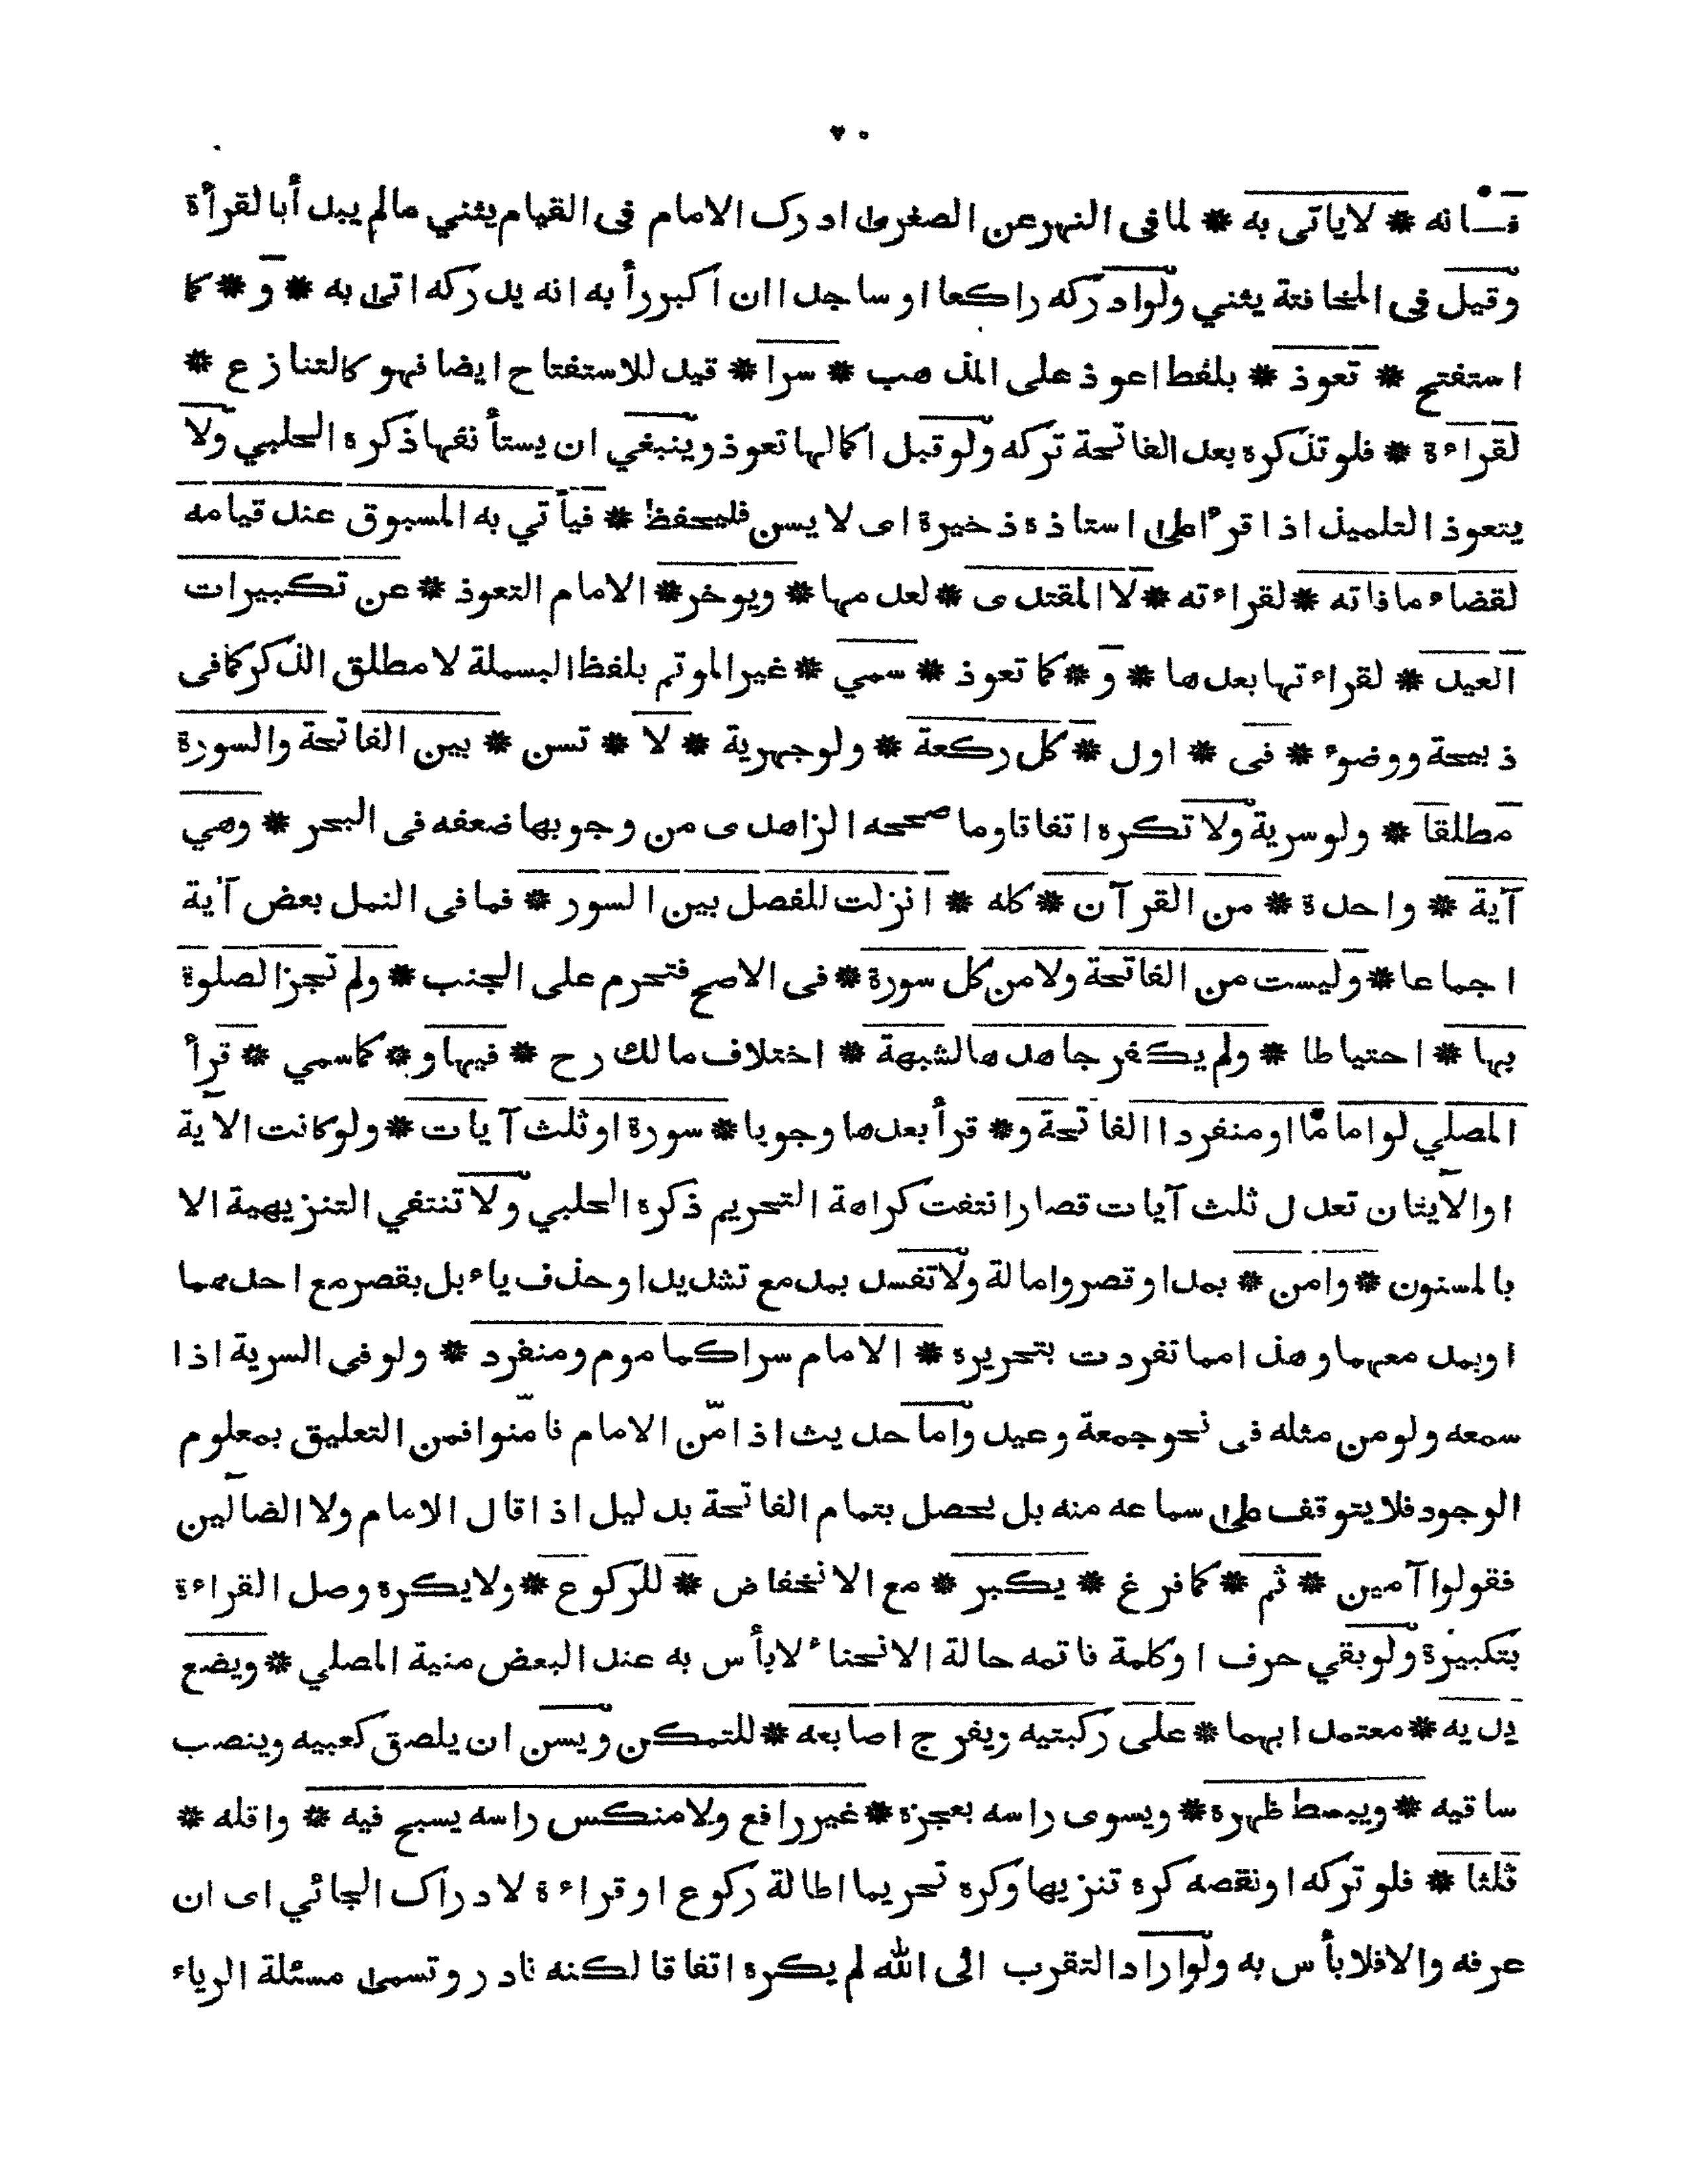 ٧٠
فـــانه * لاياتى به * لمافى النهرعن الصغرى ادرك الامام فى القيام يثني مالم يبدأ بالقرأة
وقيل فى المخافتة يثني ولوادركه راكعا اوساجدا ان اكبررأ به انه يدركه اتى به * و * كما
استفتح * تعوذ * بلفظ اعوذ على المذهب * سرا * قيد للاستفتاح ايضا فهو كالتنازع *
لقراءة * فلوتذكره بعد الفاتحة تركه ولوقبل اكمالها تعوذ وينبغي ان يستأ نفها ذكره الحلبي ولا
يتعوذ التلميذ اذا قرأ على استاذه ذخيرة اى لا يسن فليحفظ * فيأتي به المسبوق عند قيامه
لقضاء مافاته * لقراءته * لا المقتدى * لعدمها * ويوخر * الامام التعوذ * عن تكبيرات
العيد * لقراءتها بعدها * و * كما تعوذ * سمي * غيرالموتم بلفظ البسملة لا مطلق الذكركمافى
ذبيحة ووضوء * فى * اول * كل ركعة * ولوجهرية * لا * تسن * بين الفاتحة والسورة
مطلقا * ولوسرية ولا تكره اتفاقا وما صححه الزاهدى من وجوبها ضعفه فى البحر * وهي
آية * واحدة * من القرآن * كله * انزلت للفصل بين السور * فمافى النمل بعض آية
اجماعا * وليست من الفاتحة ولامن كل سورة * فى الاصح فتحرم على الجنب * ولم تجز الصلوة
بها * احتياطا * ولم يكفر جاحدهالشبهة * اختلاف مالك رح * فيها و * كماسمي * قرأ
المصلي لواماماً اومنفردا الفاتحة و * قرأ بعدها وجوبا * سورة اوثلث آيات * ولوكانت الآية
اوالآيتان تعدل ثلث آيات قصارا نتفت كراهة التحريم ذكره الحلبي ولا تنتفي التنزيهية الا
بالمسنون * وامن * بمد اوقصرواما لة ولاتفسد بمدمع تشديد اوحذف ياء بل بقصرمع احدهما
اوبمد معهما وهذا مما تفردت بتحريره * الامام سرا كماموم ومنفرد * ولوفى السرية اذا
سمعه ولومن مثله فى نحوجمعة وعيد واما حديث اذا امّن الامام فامّنوا فمن التعليق بمعلوم
الوجود فلايتوقف على سماعه منه بل يحصل بتمام الفاتحة بدليل اذا قال الامام ولا الضآلين
فقولوا آمين * ثم * كمافرغ * يكبر * مع الانخفاض * للركوع * ولايكره وصل القراءة
بتكبيرة ولوبقي حرف اوكلمة فاتمه حالة الانحناء لابأس به عند البعض منية المصلي * ويضع
يديه * معتمدا بهما * على ركبتيه ويفرج اصابعه * للتمكن ويسن ان يلصق كعبيه وينصب
ساقيه * ويبسط ظهره * ويسوى راسه بعجزه * غيررافع ولامنكس راسه يسبح فيه * واقله *
ثلثا * فلوتركه اونقصه كره تنزيها وكره تحريما اطالة ركوع اوقراءة لادراك الجائي اى ان
عرفه والافلابأس به ولواراد التقرب الى الله لم يكره اتفاقا لكنه نادر وتسمى مسئلة الرياء